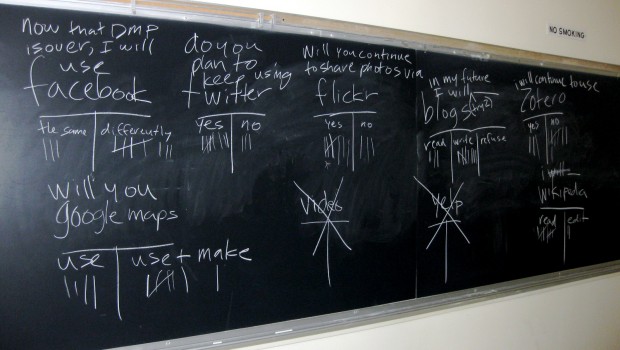 NO SMOKING
now that DMP
is over, I will
use
facebook
the same differently
do you
plan to
keep using
twitter
yes no
Will you continue
to share photos via
flickr
yes no
in my future
I will
blogs (try 2)
read write refuse
i will continue to use
Zotero
yes no
will you
google maps
use use + make
video
yelp
i
wikipedia
read edit